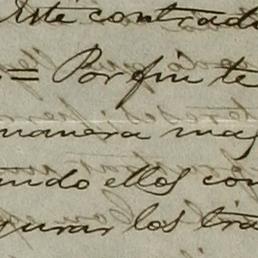 este contrado
= Por fin te
manera mas
ando ellos con
gurar los tra